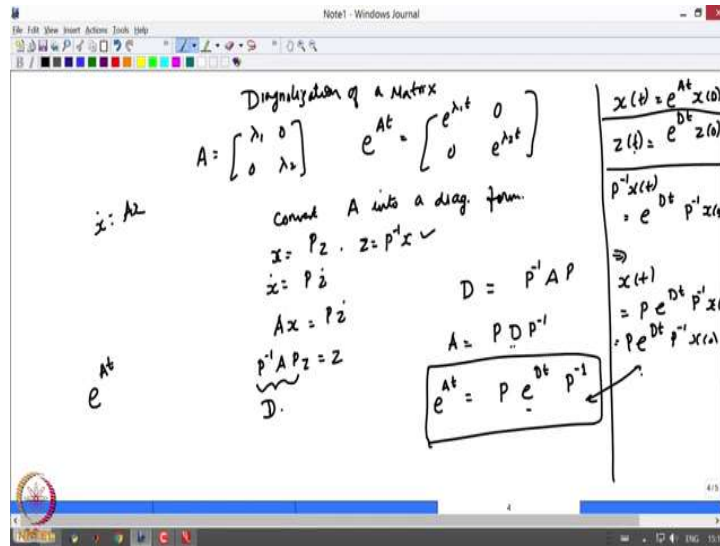 Note1 - Windows Journal
File Edit View Insert Actions Tools Help
Diagnolization of a Matrix
A = [λ₁ 0
0 λ₂]
e^{At} = [e^{λ₁t} 0
0 e^{λ₂t}]
ẋ = Az
Convert A into a diag. form.
x = Pz . z = P⁻¹x ✓
ẋ = Pż
Ax = Pż
P⁻¹APz = ż
D.
e^{At}
D = P⁻¹AP
A = PDP⁻¹
e^{At} = P e^{Dt} P⁻¹
x(t) = e^{At} x(0)
z(t) = e^{Dt} z(0)
P⁻¹x(t)
= e^{Dt} P⁻¹x(0
⇒
x(t)
= P e^{Dt} P⁻¹x(
= P e^{Dt} P⁻¹x(0)
4/5
4
NPTEL
ENG